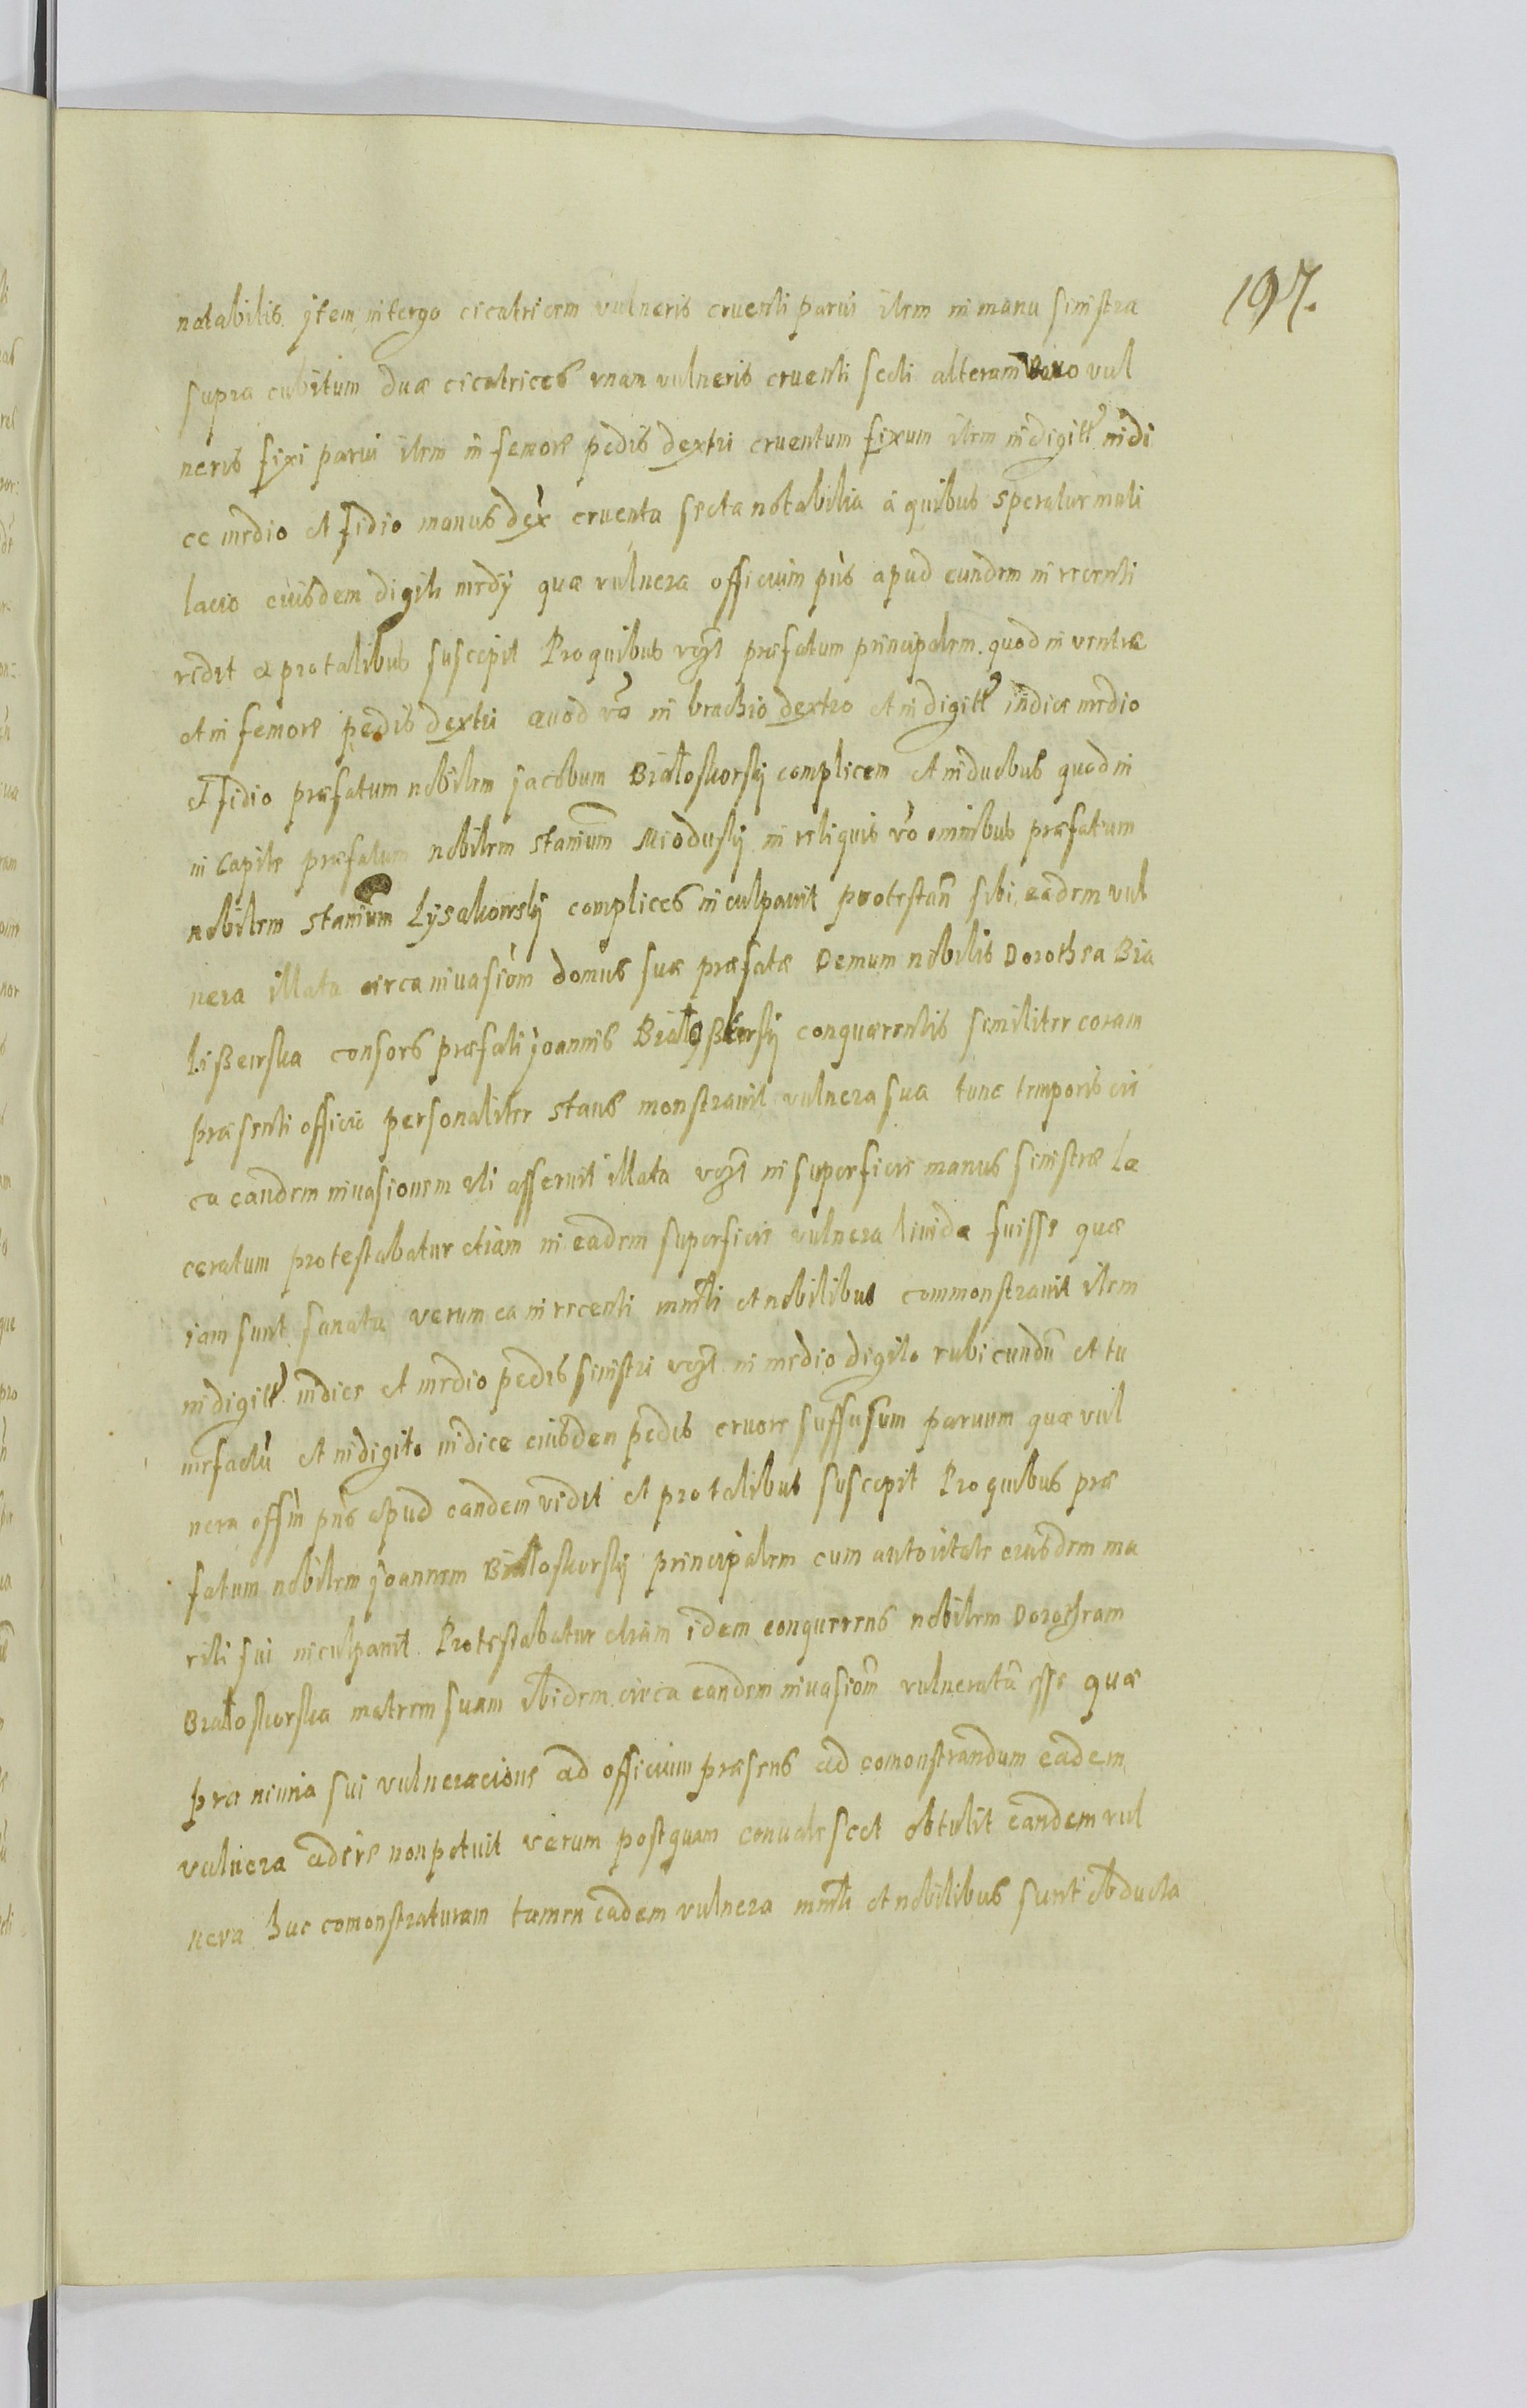 197.
notabilis jtem in tergo cicatricem vulneris cruenti parui item in manu sinistra
supra cubitum duæ cicatrices vnam vulneris cruenti secti alteram vero vul
neris fixi parui item in femore pedis dextri cruentum fixum item in digitis indi
ce medio et fidio manus dex cruenta secta notabilia a quibus speratur muti
lacio eiusdem digiti medij quæ vulnera officium pñs apud eundem in recenti
vidit et pro talibus suscepit Pro quibus præfatum principalem quod in ventre
et in femore pedis dextri quod vo in brachio dextro et in digitis indice medio
et fidio præfatum nobilem jacobum Białoskorskÿ complicem et in duobus quod in
in capite præfatum nobilem staniūm Mioduskÿ in reliquis vo omnibus præfatum
nobilem staniūm Lÿsakowskÿ complices inculpauit protestañ sibi eadem vul
nera illata circa inuasiom domus suæ præfatæ Demum nobilis Dorothea Bia
præsenti officio personaliter stans monstrauit vulnera sua tunc temporis cir
ca eandem inuasionem uti asseruit illata in superficie manus sinistræ La
ceratum protestabatur etiam in eadem superficie vulnera liuida fuisse quæ
iam sunt sanata verum ea in recenti mnrli et nobilibus commonstrauit item
in digitis indice et medio pedis sinistri in medio digito rubicundū et tu
mefactū et in digito indice eiusdem pedis cruore suffusum paruum quæ vul
nera offm pñs apud eandem vidit et pro talibus suscepit Pro quibus præ
fatum nobilem joannem Białoskorskÿ principalem cum autoritate eiusdem ma
riti sui inculpauit Protestabatur etiam idem conquerens nobilem Dorotheam
Białoskorska matrem suam ibidem circa eandem inuasiom vulneratā esse quæ
præ nimia sui vulneracione ad officium præsens ad comonstrandum eadem
vulnera adire non potuit verum postquam conualescet obtulit eandem vul
nera huc comonstraturam tamen eadem vulnera mnrli et nobilibus sunt obducta